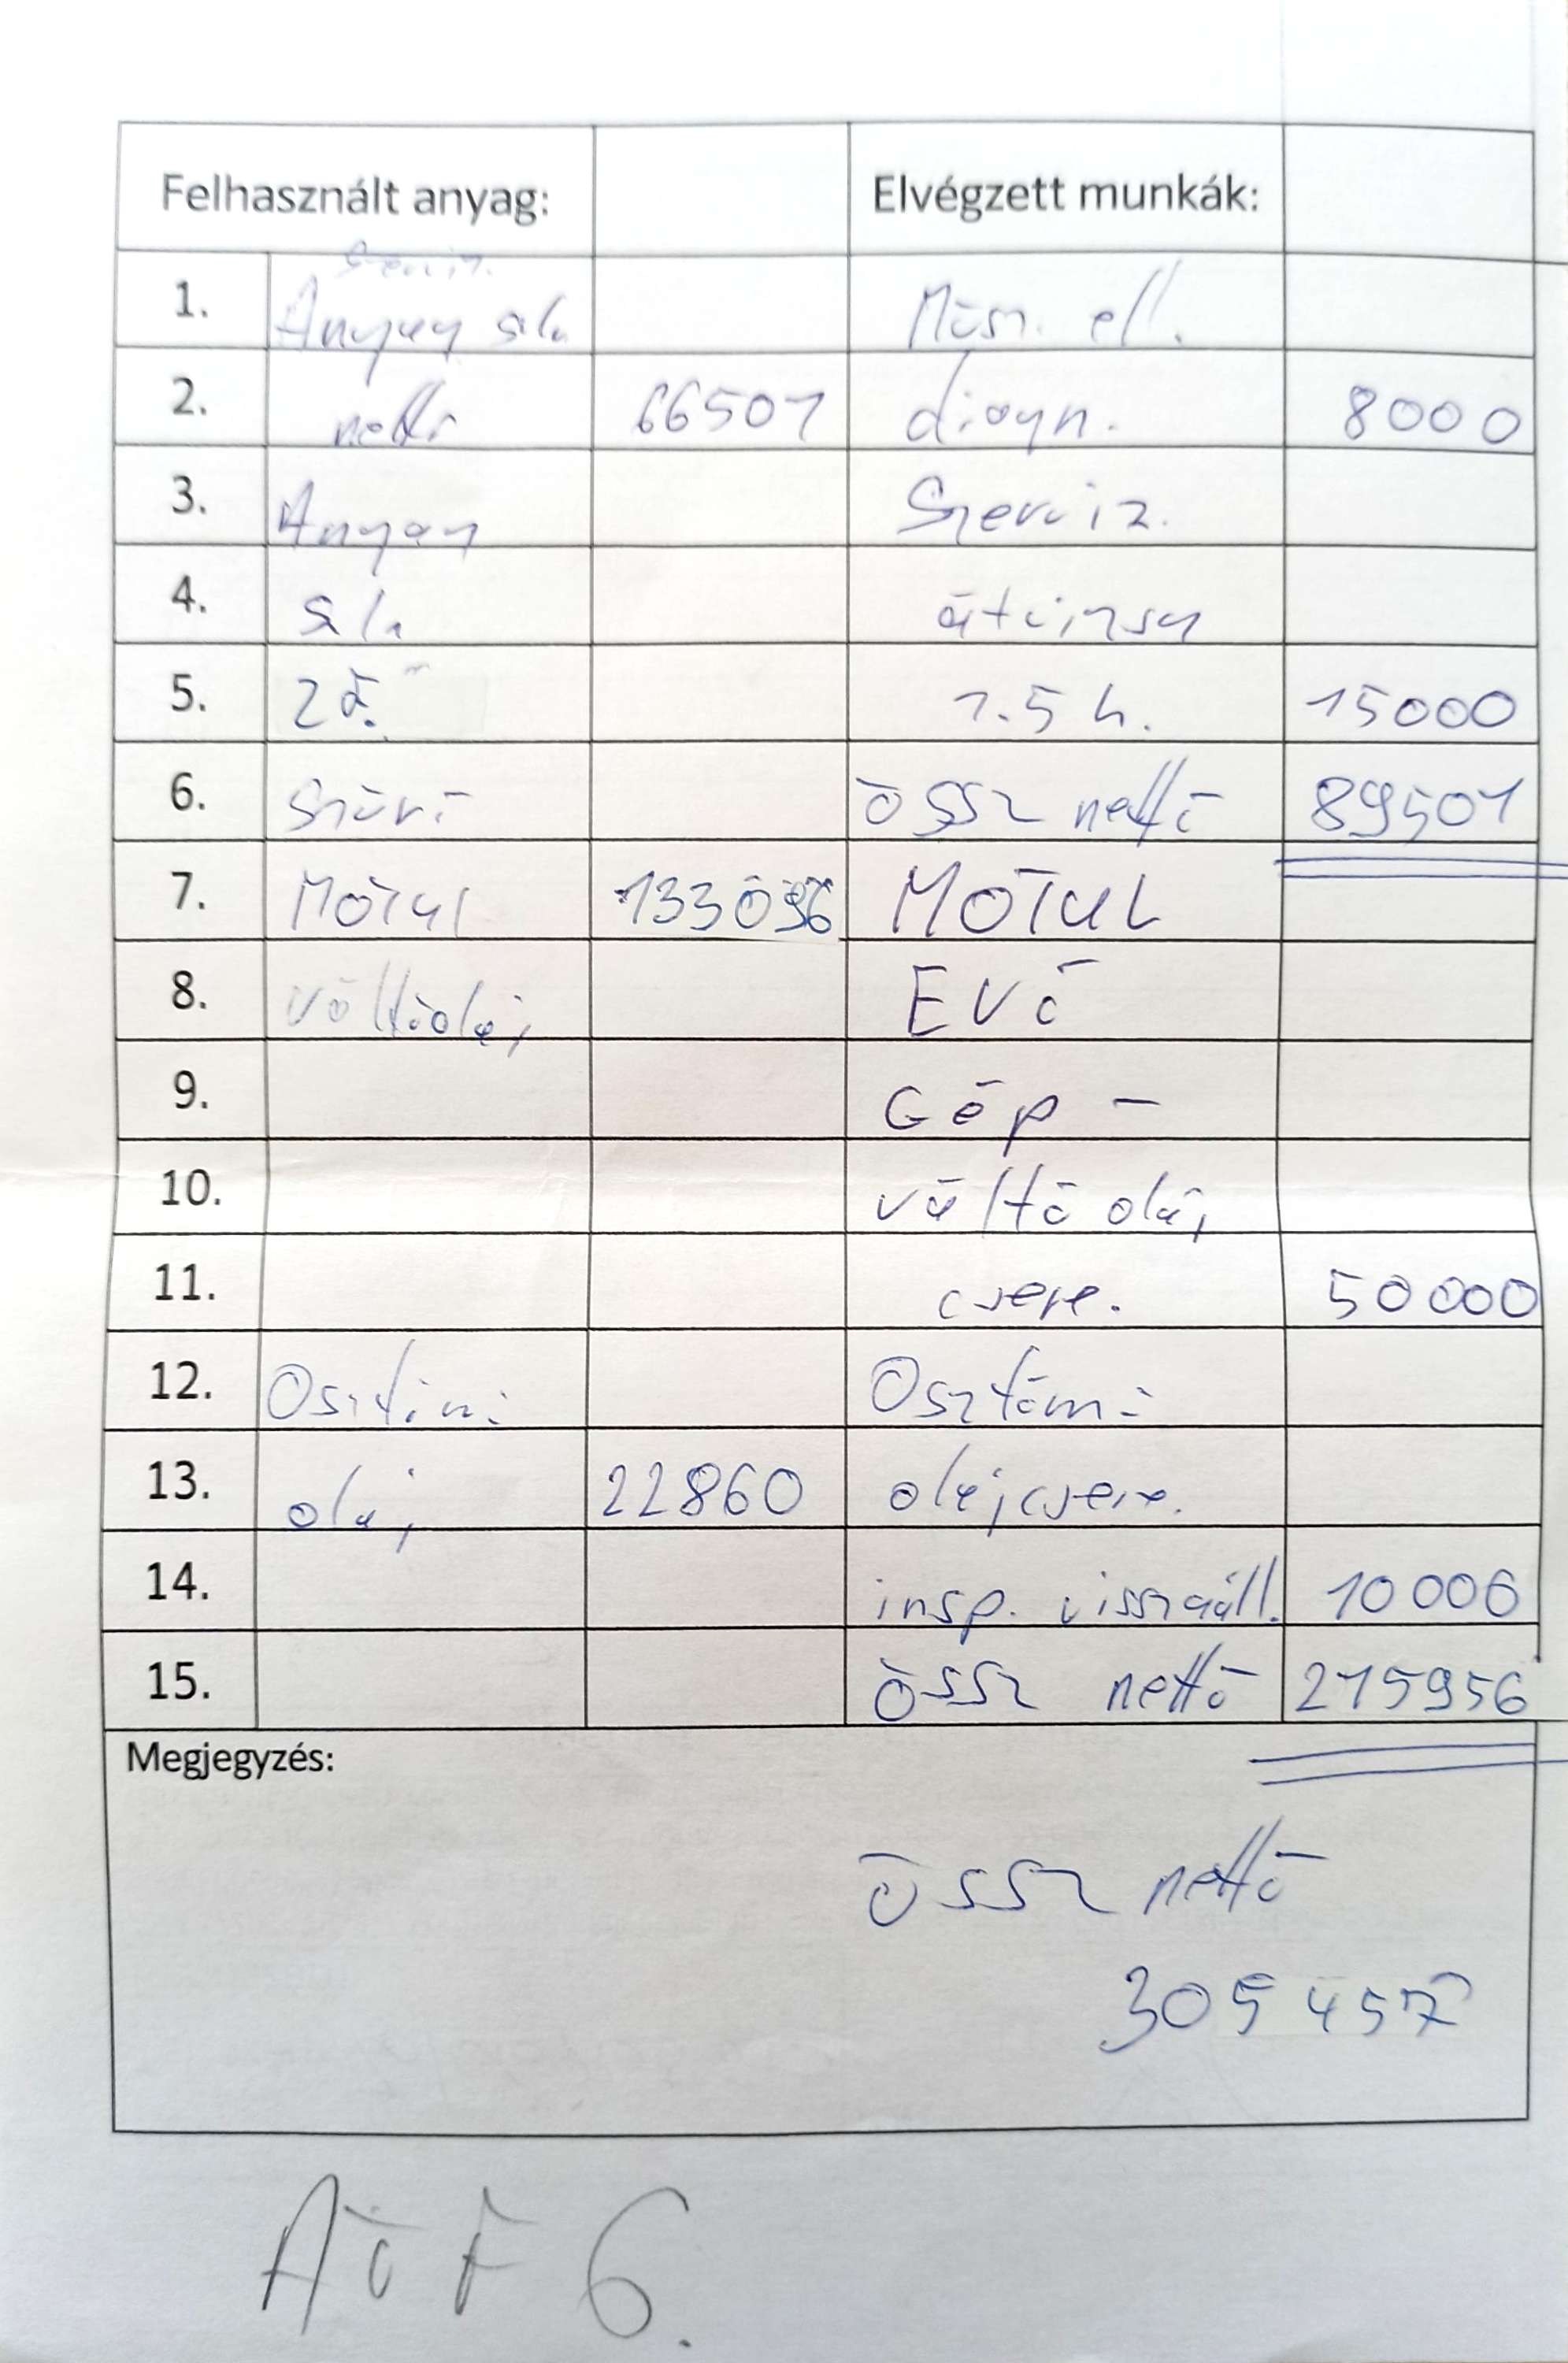 Felhasznált anyag: Elvégzett munkák:
Szerviz.
1. Anyag szla Műsz. ell.
2. nettó 66501 diagn. 8000
3. Anyag Szerviz.
4. szla átvizsg
5. 2 F. 1.5 h. 15000
6. Szűrő össz nettó 89501
7. Motul 133096 MOTUL
8. váltóolaj EVÓ
9. Gép -
10. váltó olaj
11. csere. 50000
12. Osztómű Osztómű
13. olaj 22860 olajcsere.
14. insp. visszaáll. 10000
15. össz nettó 215956
Megjegyzés:
össz nettó
305 457